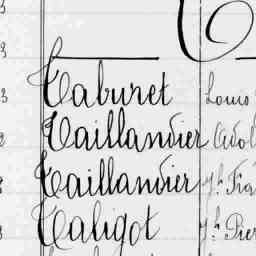 Taburet Louis
Taillandier Adol
Taillandier Jh Fra
Taligot Jh Pier